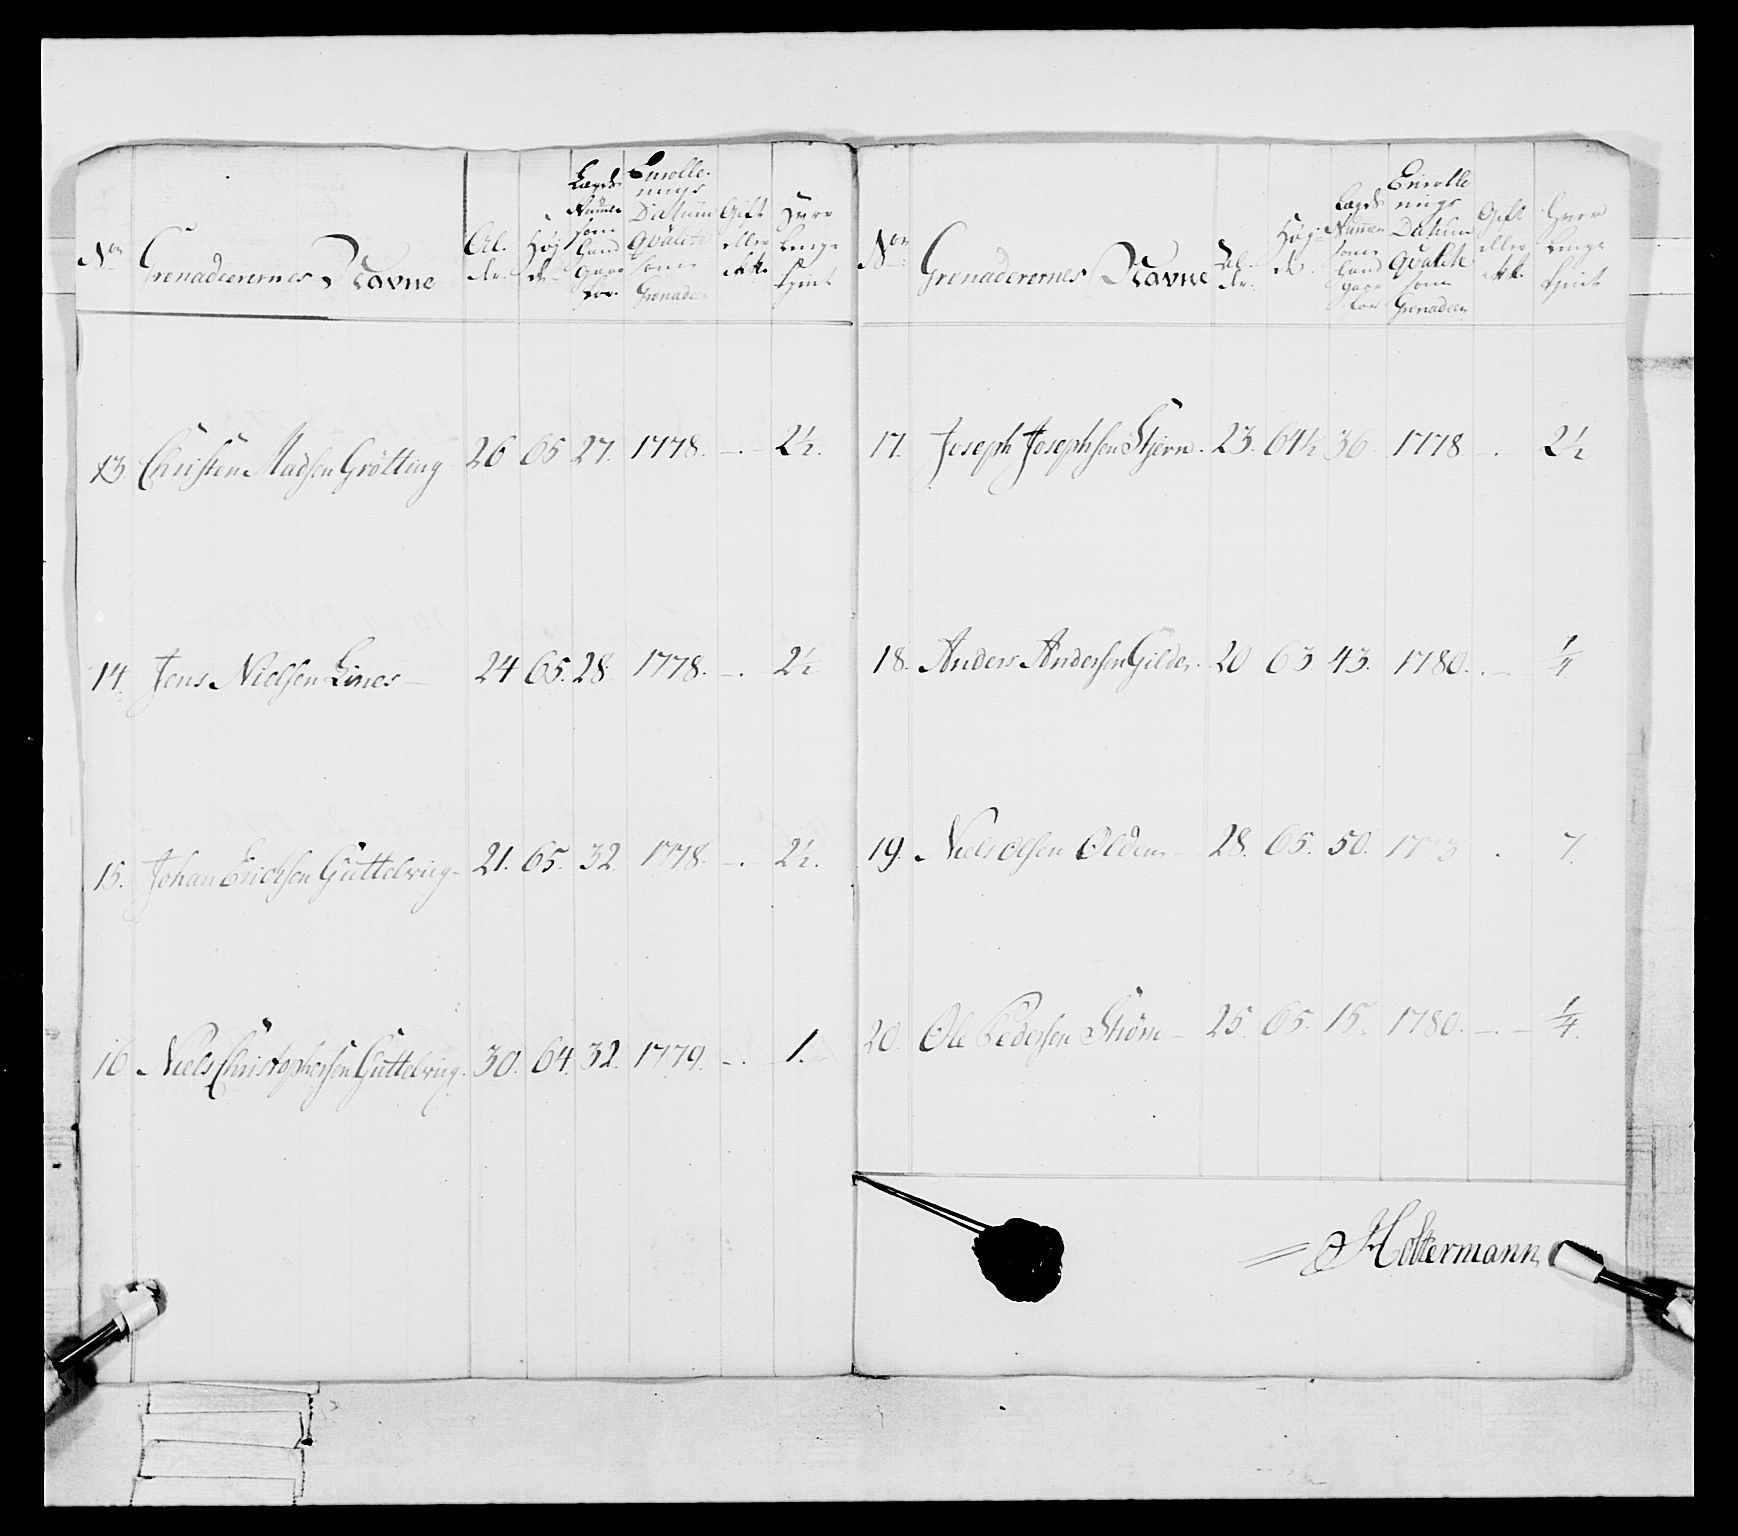 No
Grenadeerernes Navne
Al.
der.
Høj
de
Lægds
Numer
som
hand
gaar
for.
Enrolle-
rings
Datum
Qvalite
som
Grenadeer
Gift
eller
ikke
Hvor
lenge
tient
13. Christen Madsen Grötting 26 65 27. 1778. —.— 2½.
14. Jens Nielsen Lines — 24 65. 28. 1778. —. 2½
15. Johan Erichsen Güttelvrig — 21. 65. 32. 1778. —.— 2½.
16. Niels Christophersen Güttelvrig. 30. 64. 32. 1779. —. 1.
No
Grenaderernes Navne
Al.
der.
Høj-
de.
Lægds
Numer
som
hand
gaar
for
Enrolle
rings
Datum
Qvalite
som
Grenadeer
Gift
eller
ikke.
Hvor
lenge
tient
17. Joseph Josephsen Stjern. 23. 64½ 36. 1778 —. 2½
18. Anders Andersen Gilder. 20 63 43. 1780. .— ¼
19. Niels Olsen Olden — 28. 65. 50. 1773 . 7.
20. Ole Pedersen Ström — 25. 65. 15. 1780. —.— ¼.
Holtermann